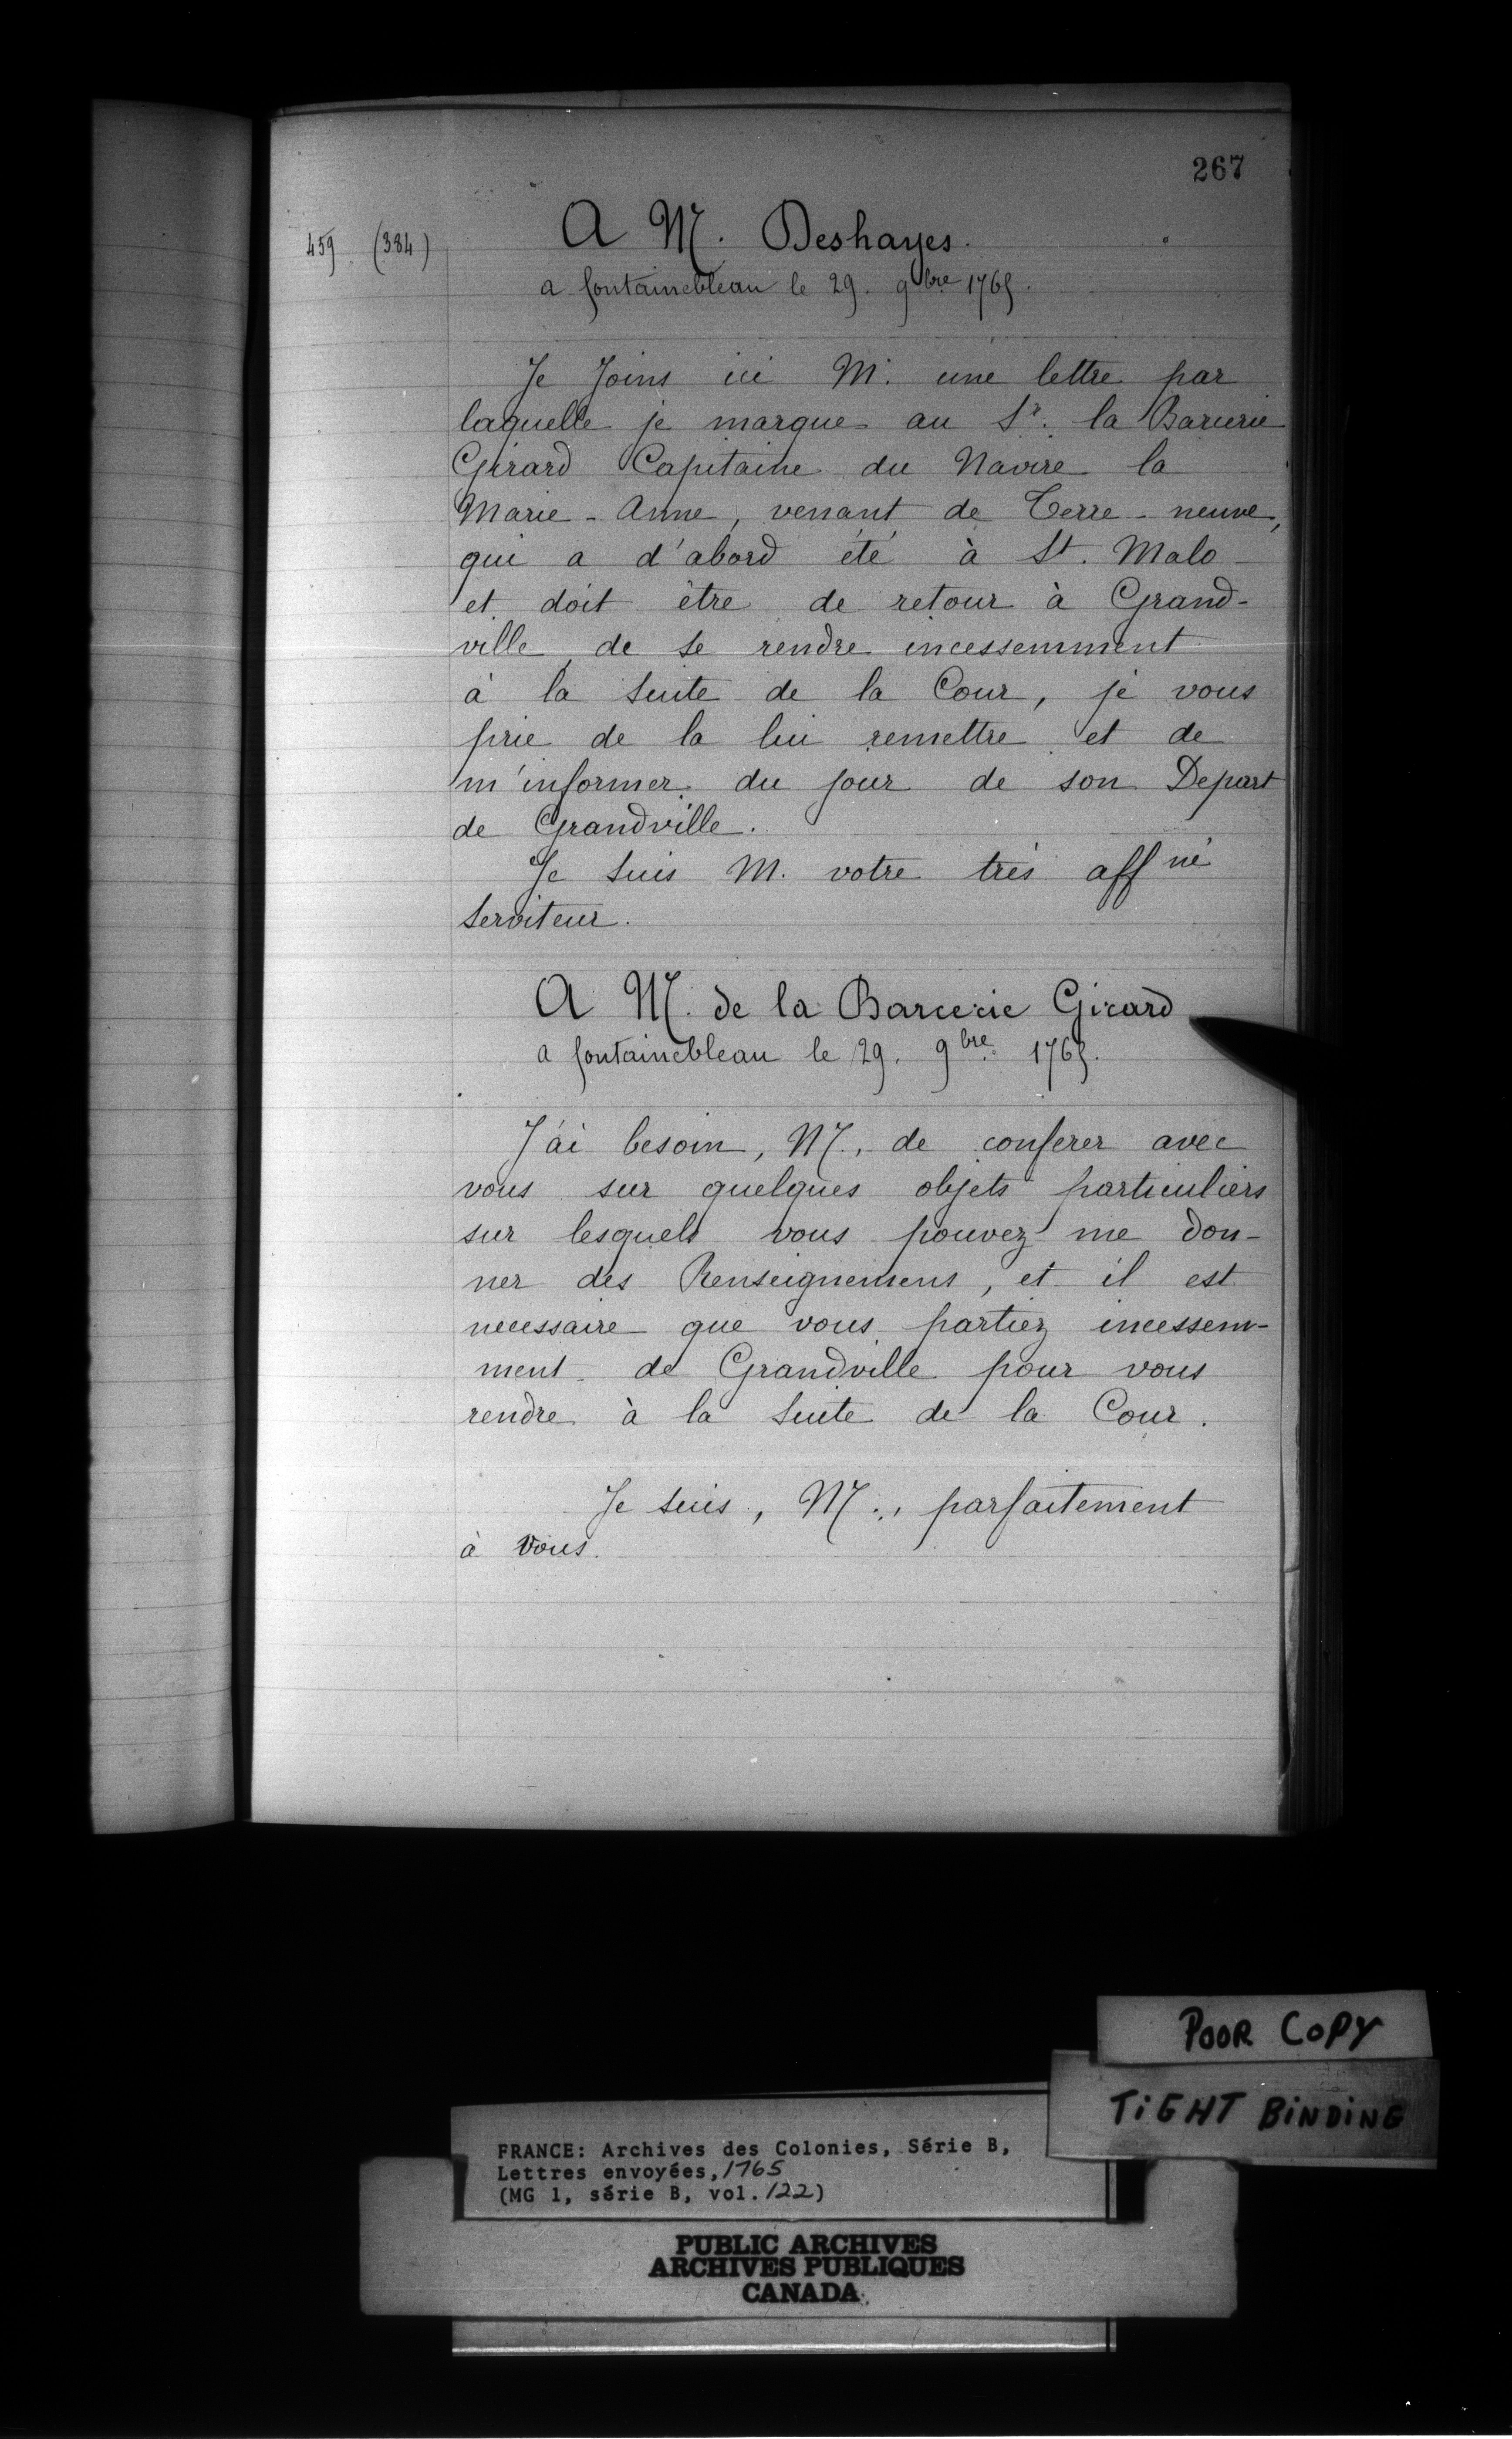 267
459 (384)
A M. Deshayes.
a fontainebleau le 29. 9bre 1765.
Je Joins ici M. une lettre par
laquelle je marque au Sr. la Barcerie
Girard Capitaine du Navire la
Marie-Anne, venant de Terre-neuve,
qui a d'abord été à St. Malo
et doit être de retour à Grand-
ville, de se rendre incessemment
à la Suite de la Cour, je vous
prie de la lui remettre et de
m'informer du jour de son Depart
de Grandville.
Je Suis M. votre très affné
Serviteur.
A M. de la Barcerie Girard
a fontainebleau le 29. 9bre. 1765.
J'ai besoin, M., de conferer avec
vous sur quelques objets particuliers
sur lesquels vous pouvez me don-
ner des Renseignemens, et il est
necessaire que vous partiez incessem-
ment de Grandville pour vous
rendre à la Suite de la Cour.
Je suis, M., parfaitement
à vous.
POOR COPY
TIGHT BINDING
FRANCE: Archives des Colonies, Série B,
Lettres envoyées, 1765
(MG 1, série B, vol. 122)
PUBLIC ARCHIVES
ARCHIVES PUBLIQUES
CANADA